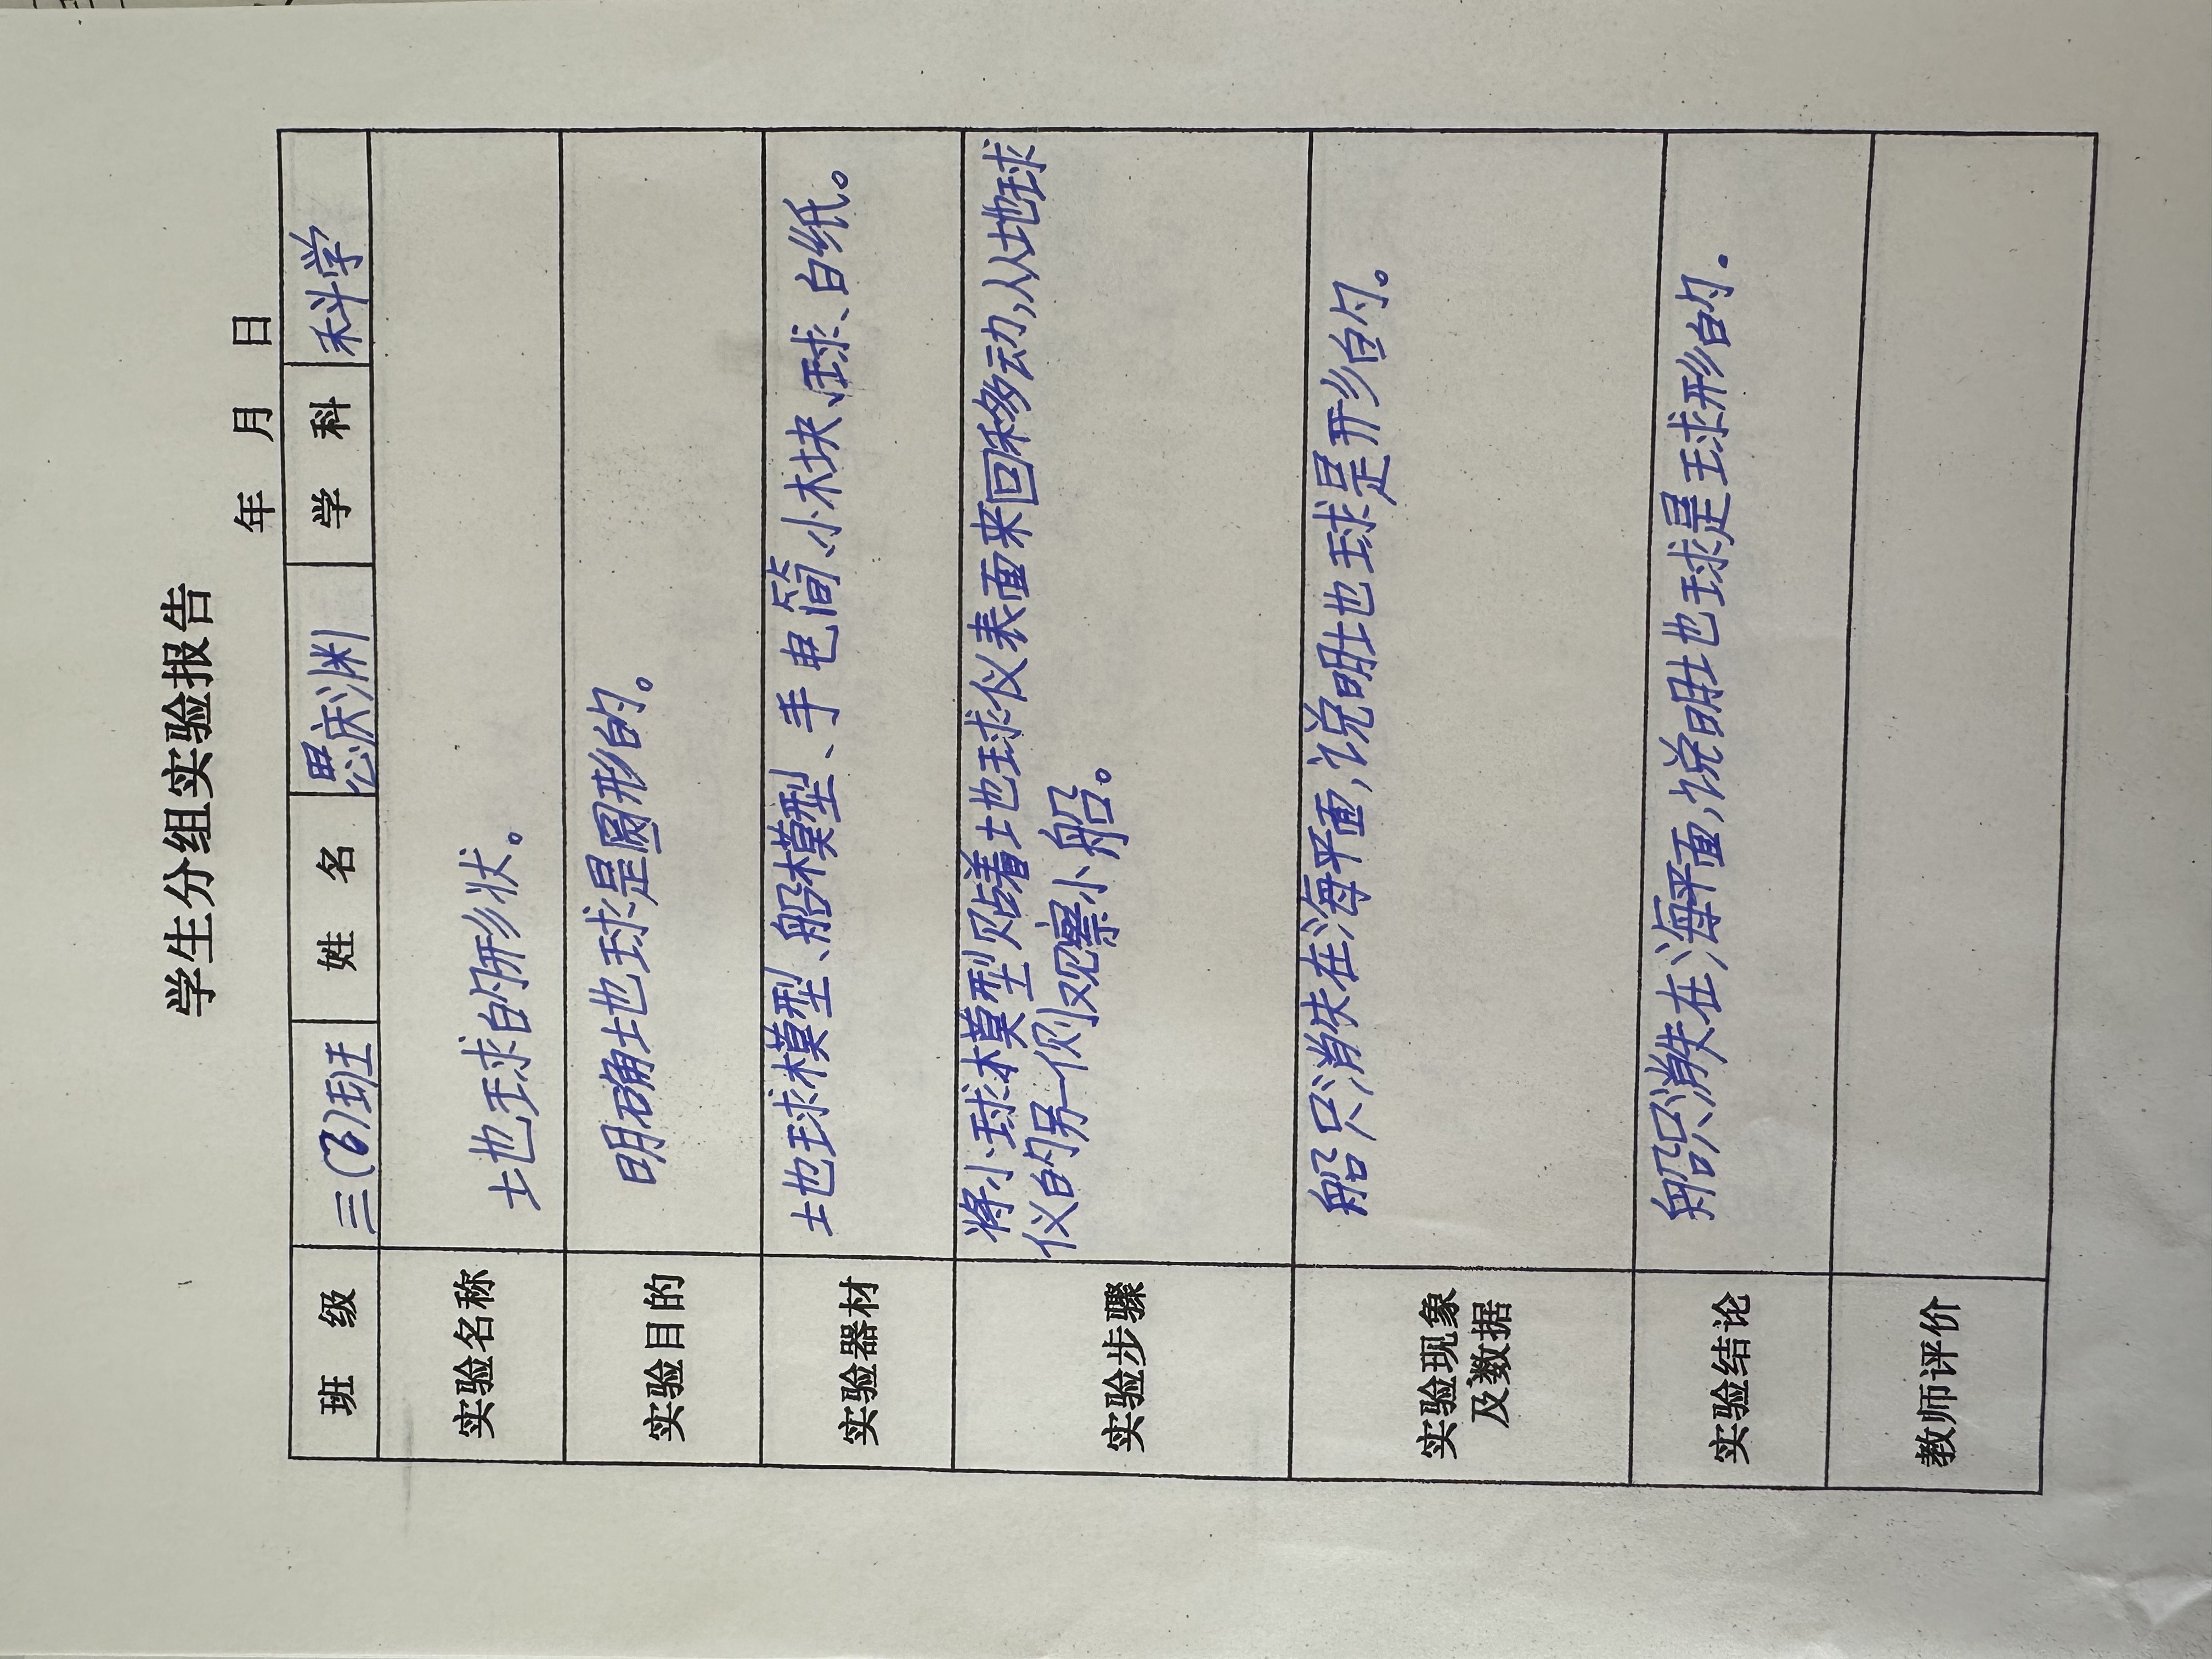 学生分组实验报告
年 月 日
班 级 三(6)班 姓 名 思庆渊 学 科 科学
实验名称 地球的形状。
实验目的 明确地球是圆形的。
实验器材 地球模型、船模型、手电筒、小木块、球、白纸。
实验步骤 将小球模型贴着地球仪表面来回移动,从地球
仪的另一侧观察小船。
实验现象 船只消失在海平面,说明地球是形的。
及数据
实验结论 船只消失在海平面,说明地球是球形的.
教师评价